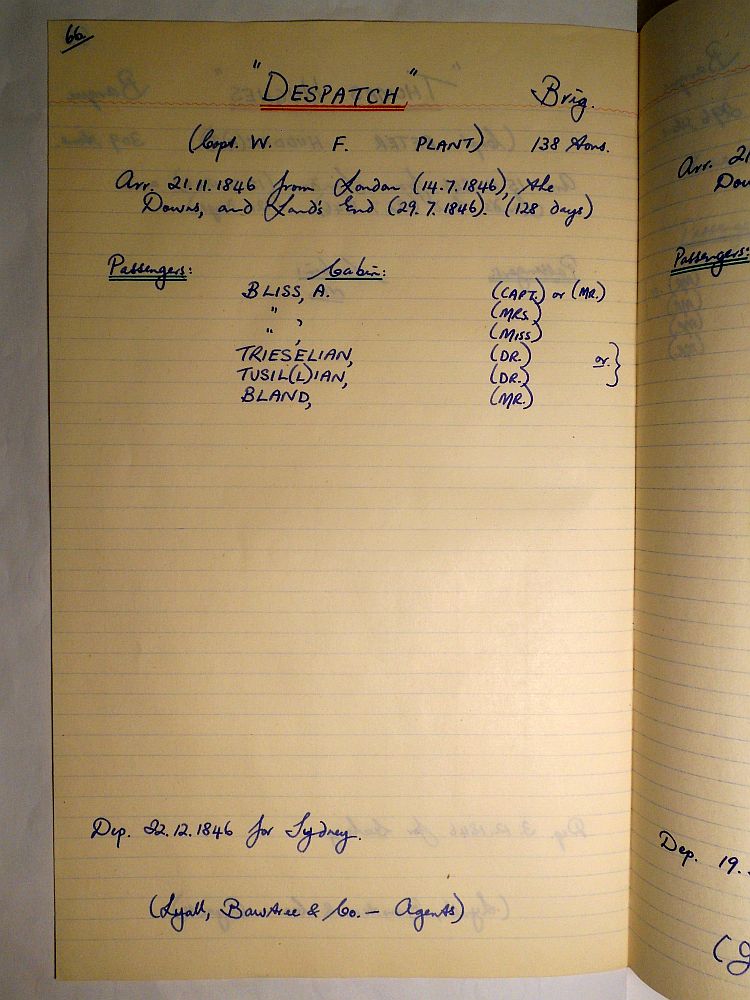 66.
"DESPATCH" Brig.
(Capt. W. F. PLANT) 138 tons.
Arr. 21.11.1846 from London (14.7.1846), the
Downs, and Land's End (29.7.1846). (128 days)
Passengers: Cabin:
BLISS, A. (CAPT.) or (MR.)
" , (MRS.)
" , (MISS)
TRIESELIAN, (DR.) or }
TUSIL(L)IAN, (DR.)
BLAND, (MR.)
Dep. 22.12.1846 for Sydney.
(Lyall, Bawtree & Co. — Agents)
Arr. 21
Dow
Passengers:
Dep. 19.